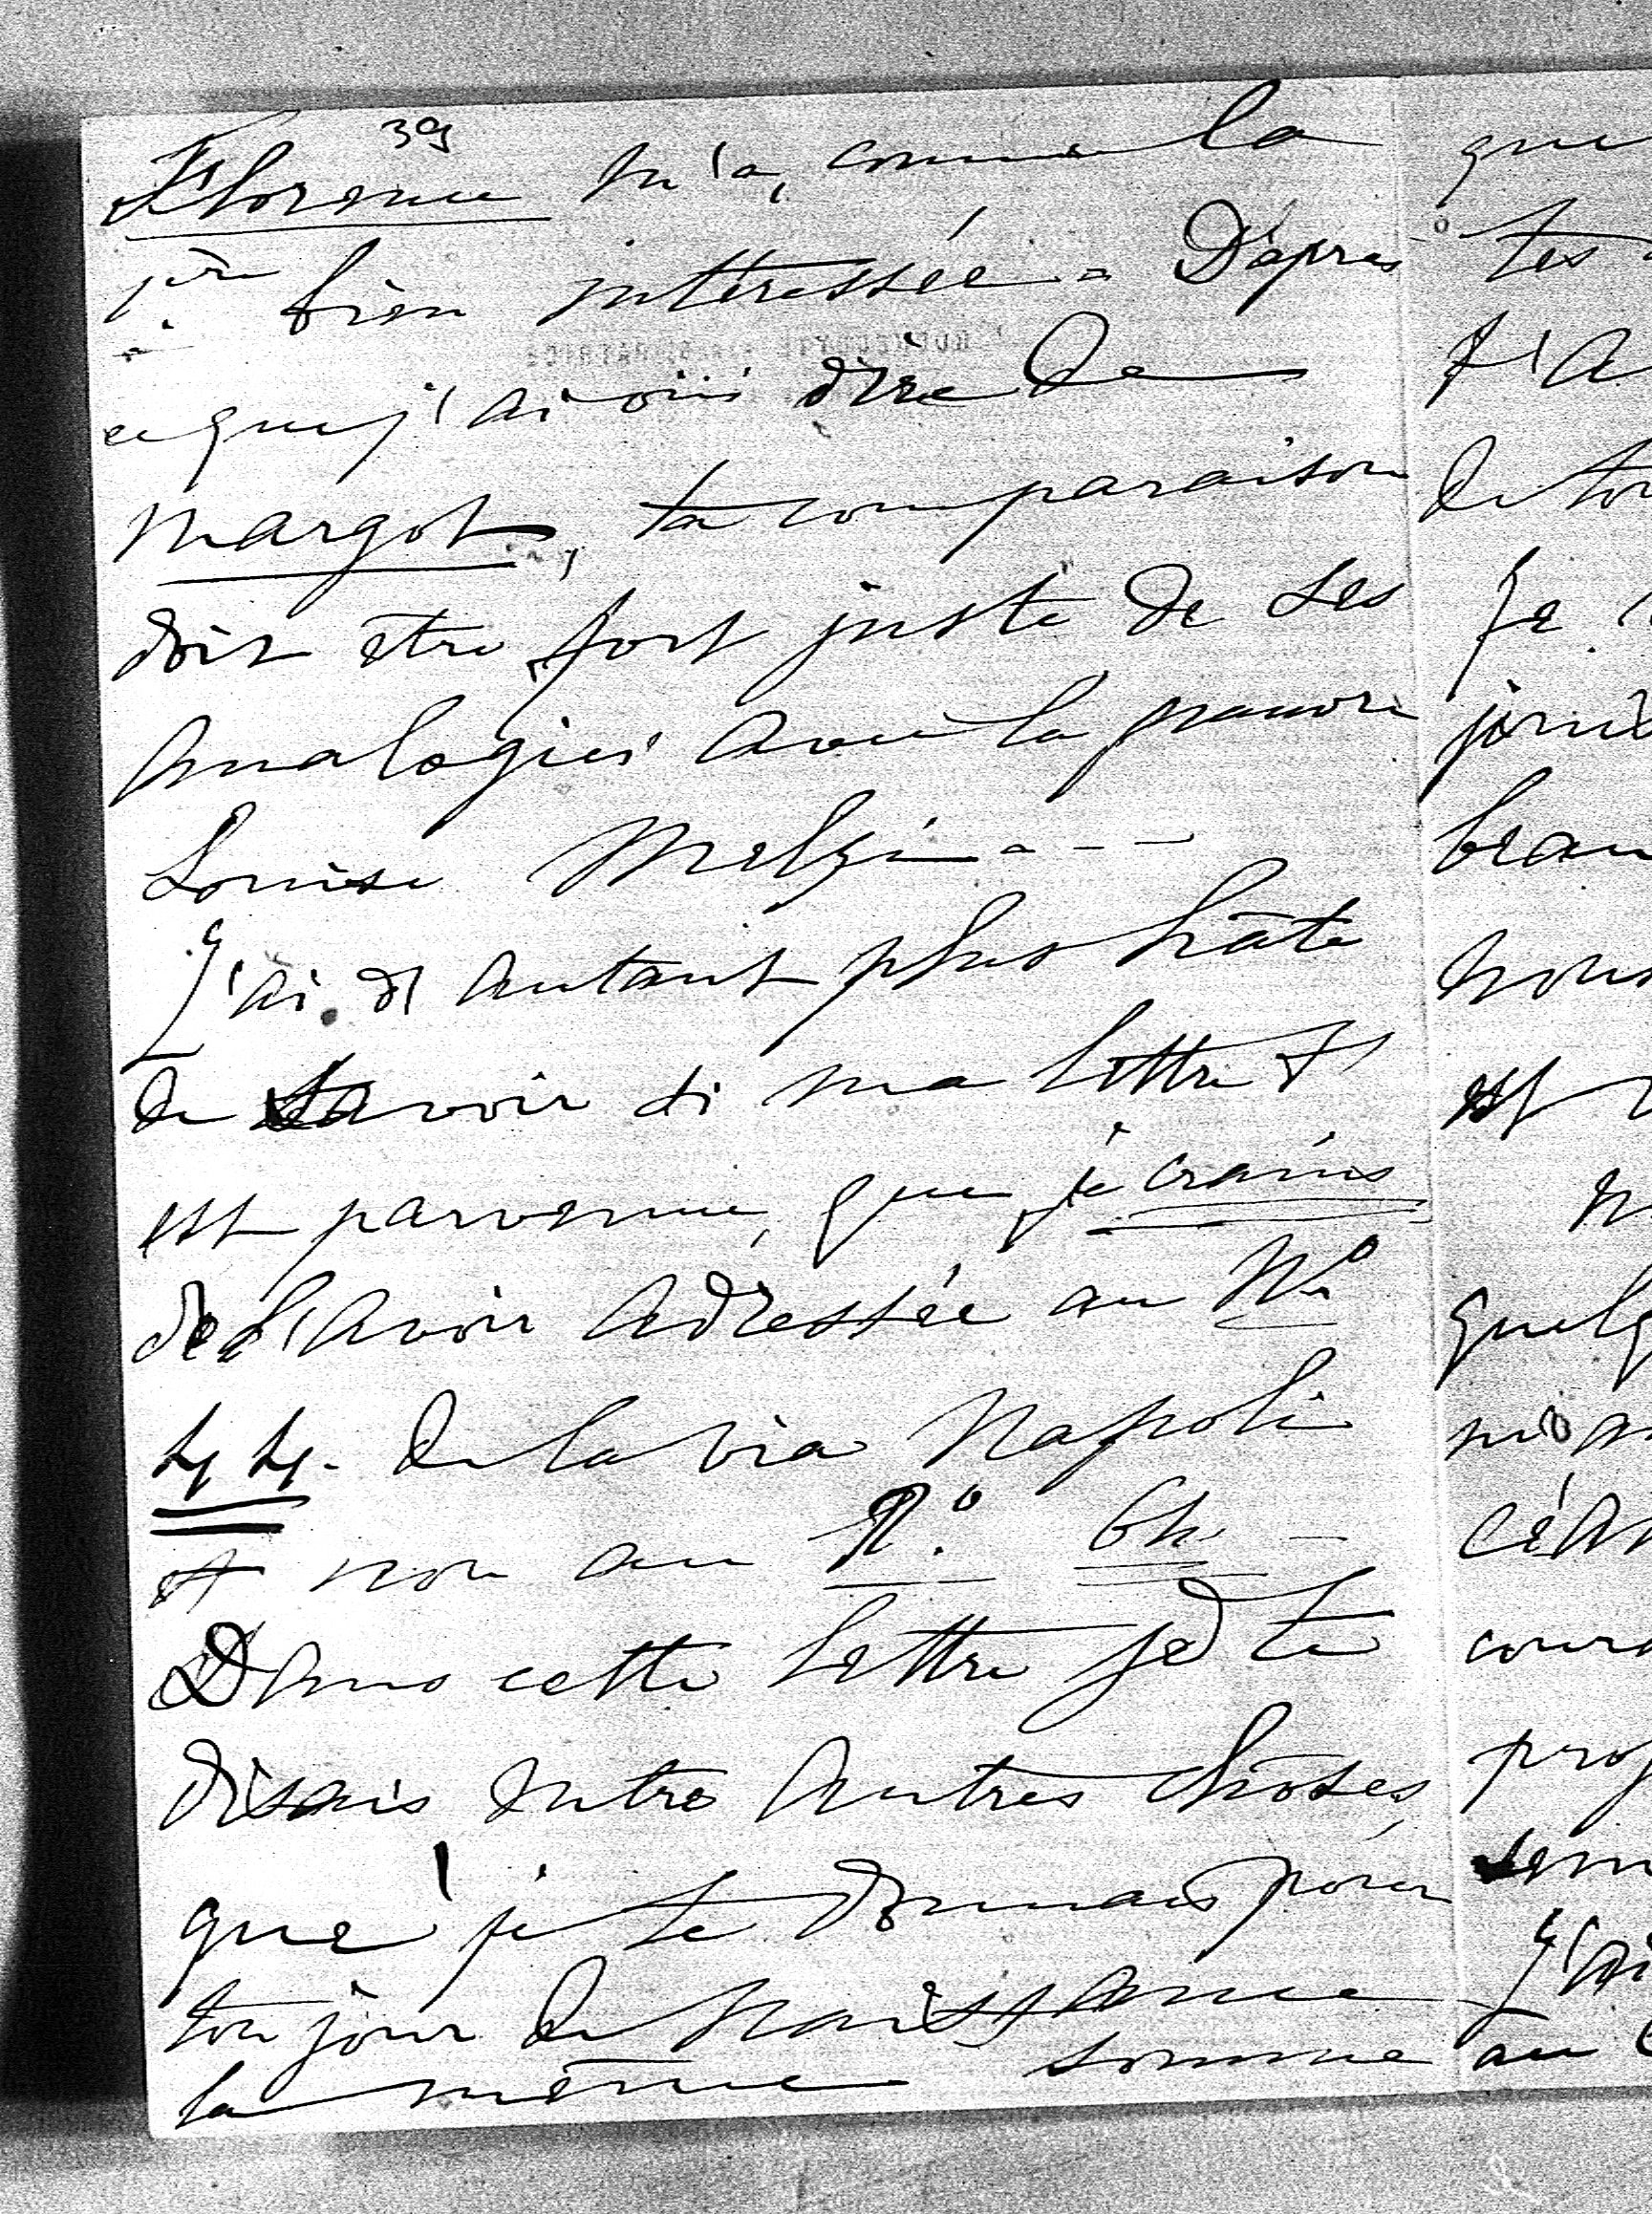 39
Florence m'a, comme la
1ère bien intéressée = D'après
ce que j'ai ouï dire de
Margot, ta comparaison
doit être fort juste de ses
analogies avec la pauvre
Louise Melzi - - -
J'ai d'autant plus hâte
de savoir si ma lettre t'
est parvenue, que je crains
de l'avoir adressée au No
44. de la via Napoli
et non au No.
Dans cette lettre je te
disais entre autres choses,
que je te donnais pour
ton jour de naissance
la même somme
que
tes
t'a
de tou
je
beau
nous
est
quelq
cour
prof
J'ai
au